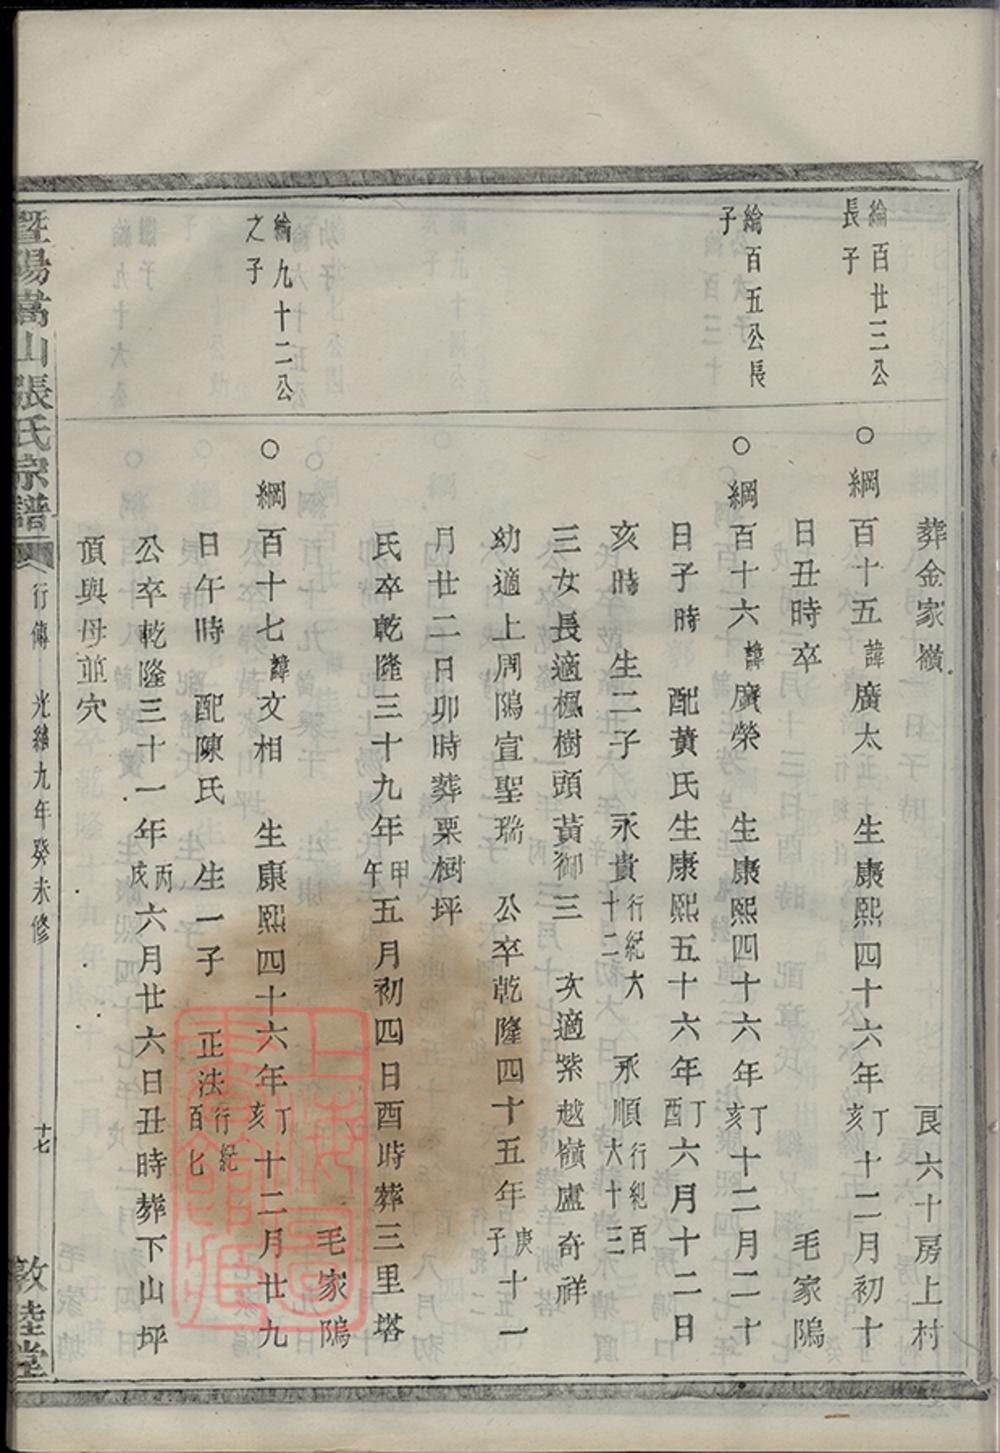 葬金家嶺　艮六十房上村
綸百廿三公
長子
○綱百十五諱廣太　生康熙四十六年丁亥十二月初十
日丑時卒　毛家隖
綸百五公長
子
○綱百十六諱廣榮　生康熙四十六年丁亥十二月二十
日子時　配黃氏生康熙五十六年丁酉六月十二日
亥時　生二子　永貴行紀十二大　永順行紀百大十三
三女長適楓樹頭黃御三　次適紫越嶺盧奇祥
幼適上周隖宣聖瑞　公卒乾隆四十五年庚子十一
月廿二日卯時葬栗樹坪
氏卒乾隆三十九年甲午五月初四日酉時葬三里塔
毛家隖
綸九十二公
之子
○綱百十七諱文相　生康熙四十六年丁亥十二月廿九
日午時　配陳氏　生一子　正法行紀百七
公卒乾隆三十一年丙戌六月廿六日丑時葬下山坪
頂與母並穴
暨陽嵩山張氏宗譜　行傳　光緒九年癸未修　十七　敦睦堂
上海圖書館藏